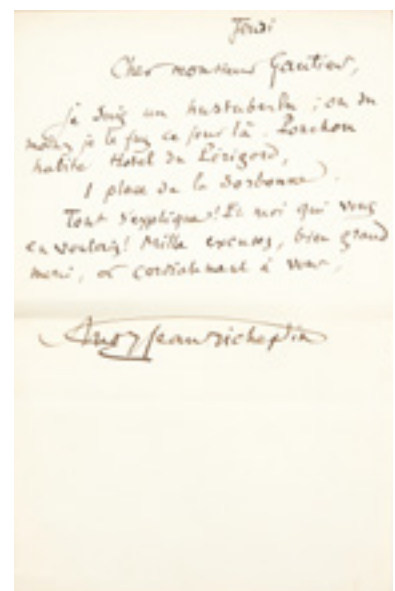 Jeudi
Cher monsieur Gautier,
je suis un hurluberlu ; ou du
moins je le fus ce jour là. Ponchon
habite Hotel du Périgord,
1 place de la Sorbonne.
Tout s'explique! Et moi qui vous
en voulais! Mille excuses, bien grand
merci, et cordialement à vous.
Jean Richepin